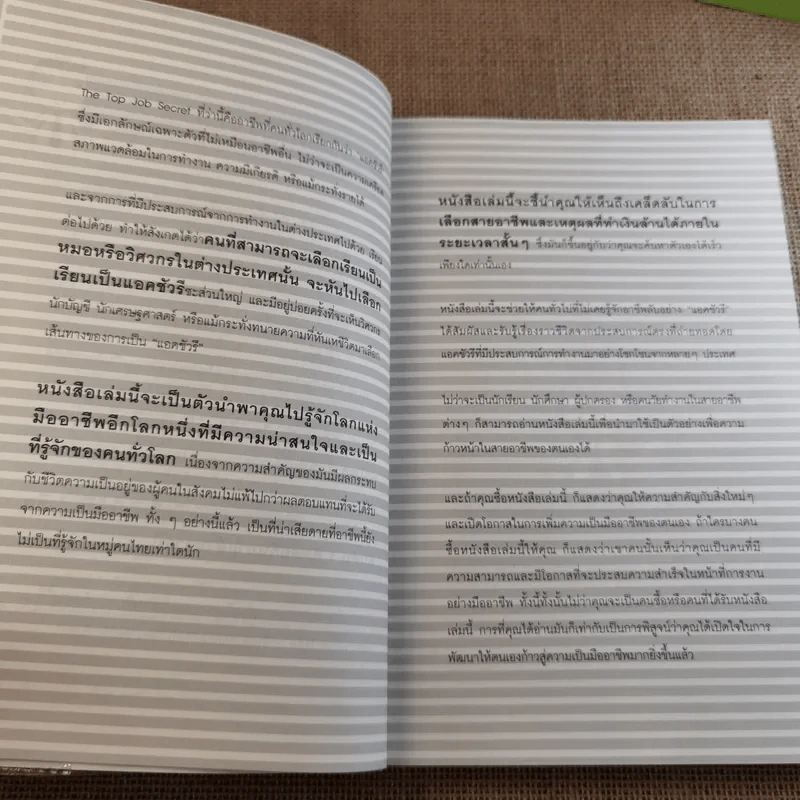 The Top Job Secret ที่ว่านี้คืออาชีพที่คนทั่วโลกเรียกกันว่า "แอคชัวรี"
ซึ่งมีเอกลักษณ์เฉพาะตัวที่ไม่เหมือนอาชีพอื่น ไม่ว่าจะเป็นความเครียด
สภาพแวดล้อมในการทำงาน ความมีเกียรติ หรือแม้กระทั่งรายได้
และจากการที่มีประสบการณ์จากการทำงานในต่างประเทศไปด้วย เรียน
ต่อไปด้วย ทำให้สังเกตได้ว่าคนที่สามารถจะเลือกเรียนเป็น
หมอหรือวิศวกรในต่างประเทศนั้น จะหันไปเลือก
เรียนเป็นแอคชัวรีซะส่วนใหญ่ และมีอยู่บ่อยครั้งที่จะเห็นวิศวกร
นักบัญชี นักเศรษฐศาสตร์ หรือแม้กระทั่งทนายความที่หันเหชีวิตมาเลือก
เส้นทางของการเป็น "แอคชัวรี"
หนังสือเล่มนี้จะเป็นตัวนำพาคุณไปรู้จักโลกแห่ง
มืออาชีพอีกโลกหนึ่งที่มีความน่าสนใจและเป็น
ที่รู้จักของคนทั่วโลก เนื่องจากความสำคัญของมันมีผลกระทบ
กับชีวิตความเป็นอยู่ของผู้คนในสังคมไม่แพ้ไปกว่าผลตอบแทนที่จะได้รับ
จากความเป็นมืออาชีพ ทั้ง ๆ อย่างนี้แล้ว เป็นที่น่าเสียดายที่อาชีพนี้ยัง
ไม่เป็นที่รู้จักในหมู่คนไทยเท่าใดนัก
หนังสือเล่มนี้จะชี้นำคุณให้เห็นถึงเคล็ดลับในการ
เลือกสายอาชีพและเหตุผลที่ทำเงินล้านได้ภายใน
ระยะเวลาสั้นๆ ซึ่งมันก็ขึ้นอยู่กับว่าคุณจะค้นหาตัวเองได้เร็ว
เพียงใดเท่านั้นเอง
หนังสือเล่มนี้จะช่วยให้คนทั่วไปที่ไม่เคยรู้จักอาชีพลับอย่าง "แอคชัวรี"
ได้สัมผัสและรับรู้เรื่องราวชีวิตจากประสบการณ์ตรงที่ถ่ายทอดโดย
แอคชัวรีที่มีประสบการณ์การทำงานมาอย่างโชกโชนจากหลายๆ ประเทศ
ไม่ว่าจะเป็นนักเรียน นักศึกษา ผู้ปกครอง หรือคนวัยทำงานในสายอาชีพ
ต่างๆ ก็สามารถอ่านหนังสือเล่มนี้เพื่อนำมาใช้เป็นตัวอย่างเพื่อความ
ก้าวหน้าในสายอาชีพของตนเองได้
และถ้าคุณซื้อหนังสือเล่มนี้ ก็แสดงว่าคุณให้ความสำคัญกับสิ่งใหม่ๆ
และเปิดโอกาสในการเพิ่มความเป็นมืออาชีพของตนเอง ถ้าใครบางคน
ซื้อหนังสือเล่มนี้ให้คุณ ก็แสดงว่าเขาคนนั้นเห็นว่าคุณเป็นคนที่มี
ความสามารถและมีโอกาสที่จะประสบความสำเร็จในหน้าที่การงาน
อย่างมืออาชีพ ทั้งนี้ทั้งนั้นไม่ว่าคุณจะเป็นคนซื้อหรือคนที่ได้รับหนังสือ
เล่มนี้ การที่คุณได้อ่านมันก็เท่ากับเป็นการพิสูจน์ว่าคุณได้เปิดใจในการ
พัฒนาให้ตนเองก้าวสู่ความเป็นมืออาชีพมากยิ่งขึ้นแล้ว